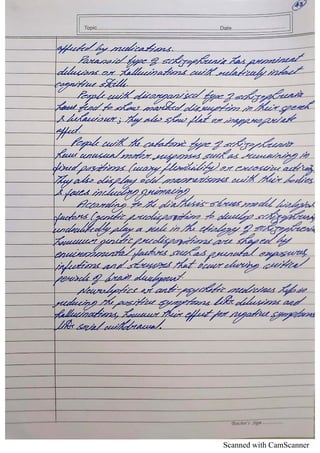 43
Topic Date
affected by medications.
Paranoid type of schizophrenia has prominent
delusions or hallucinations with relatively intact
cognitive skills.
People with disorganised type of schizophrenia
have tend to show marked disruption in their speech
& behaviour; they also show flat or inappropriate
effect.
People with the catatonic type of schizophrenia
have unusual motor responses such as remaining in
fixed positions (waxy flexibility) or excessive activity
They also display odd mannerisms with their bodies
& faces including grimacing
According to the diathesis stress model, biological
factors (genetic predisposition to develop schizophrenia)
undoubtedly play a role in the etiology of schizophrenia
however genetic predispositions are shaped by
environmental factors such as prenatal exposures,
infections and stressors that occur during critical
periods of brain development.
Neuroleptics or anti-psychotic medicines help in
reducing the positive symptoms like delusions and
hallucinations, however their effect for negative symptoms
like social withdrawal.
Teacher's Sign
Scanned with CamScanner